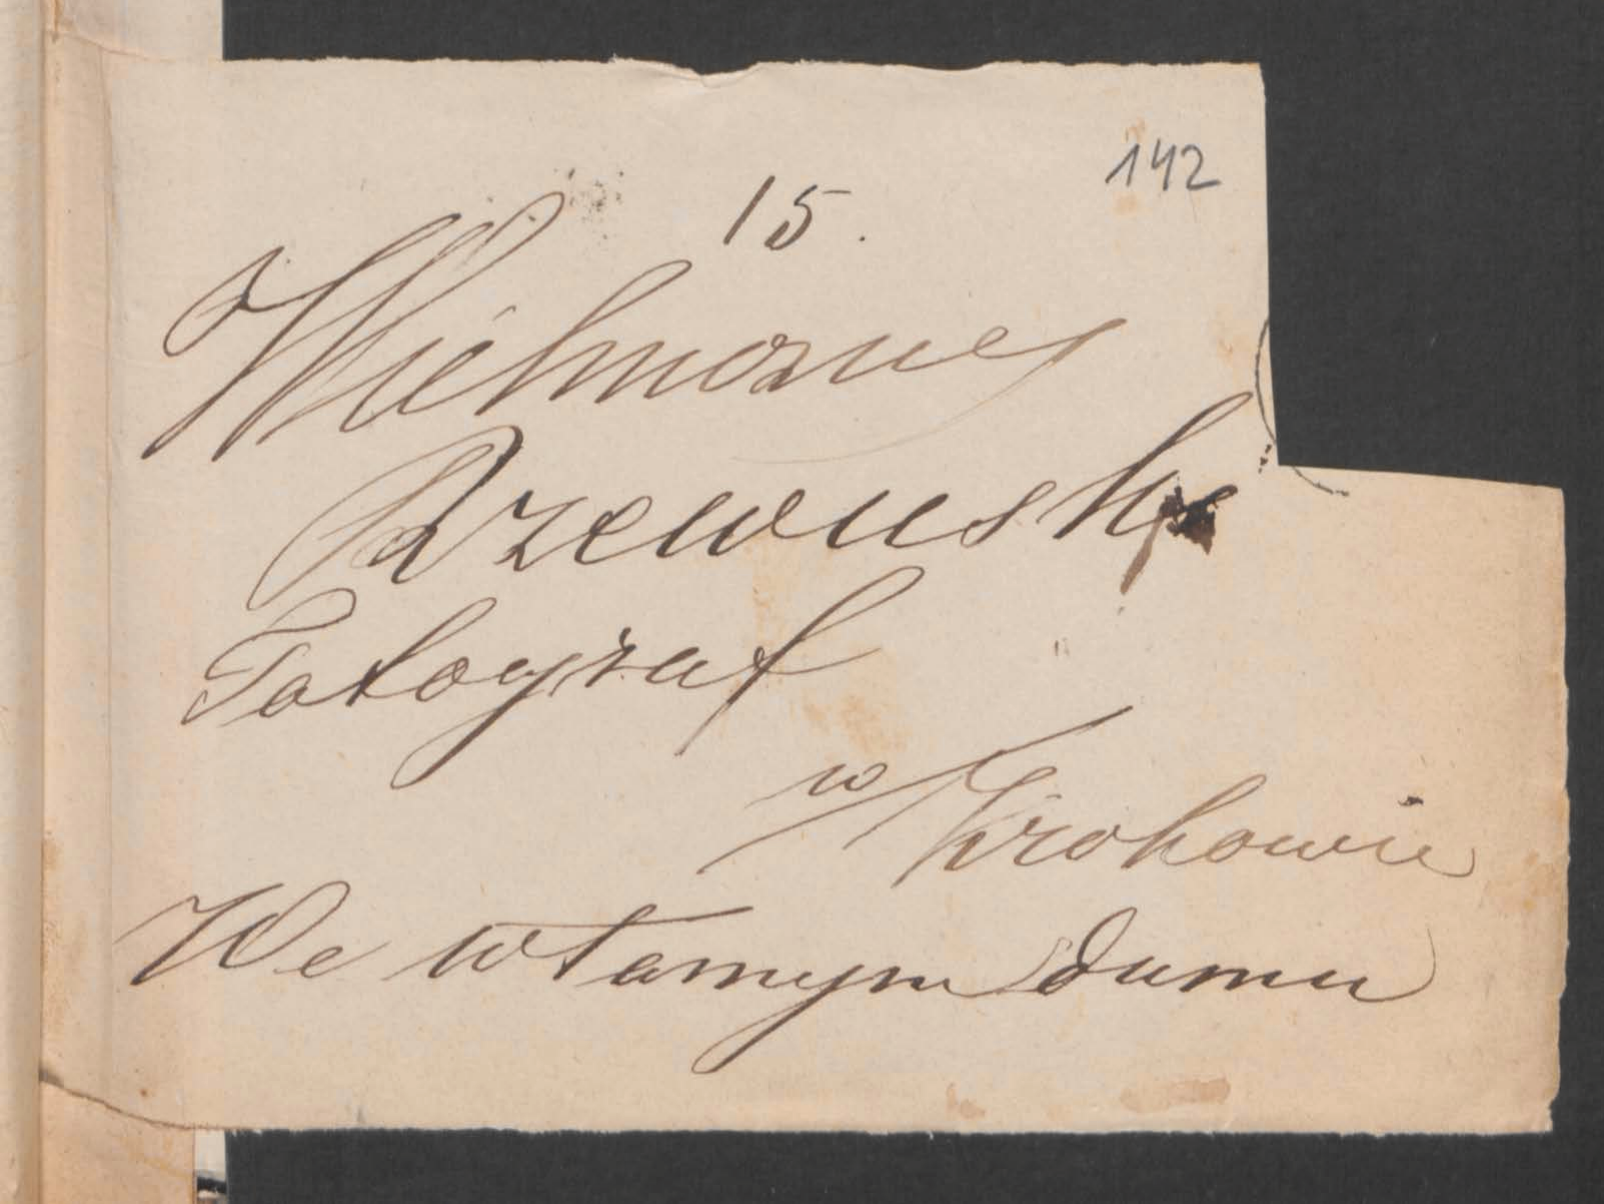 142
15.
Wielmożny
Rzewuski
Fotograf
w Krakowie
We włamym domu